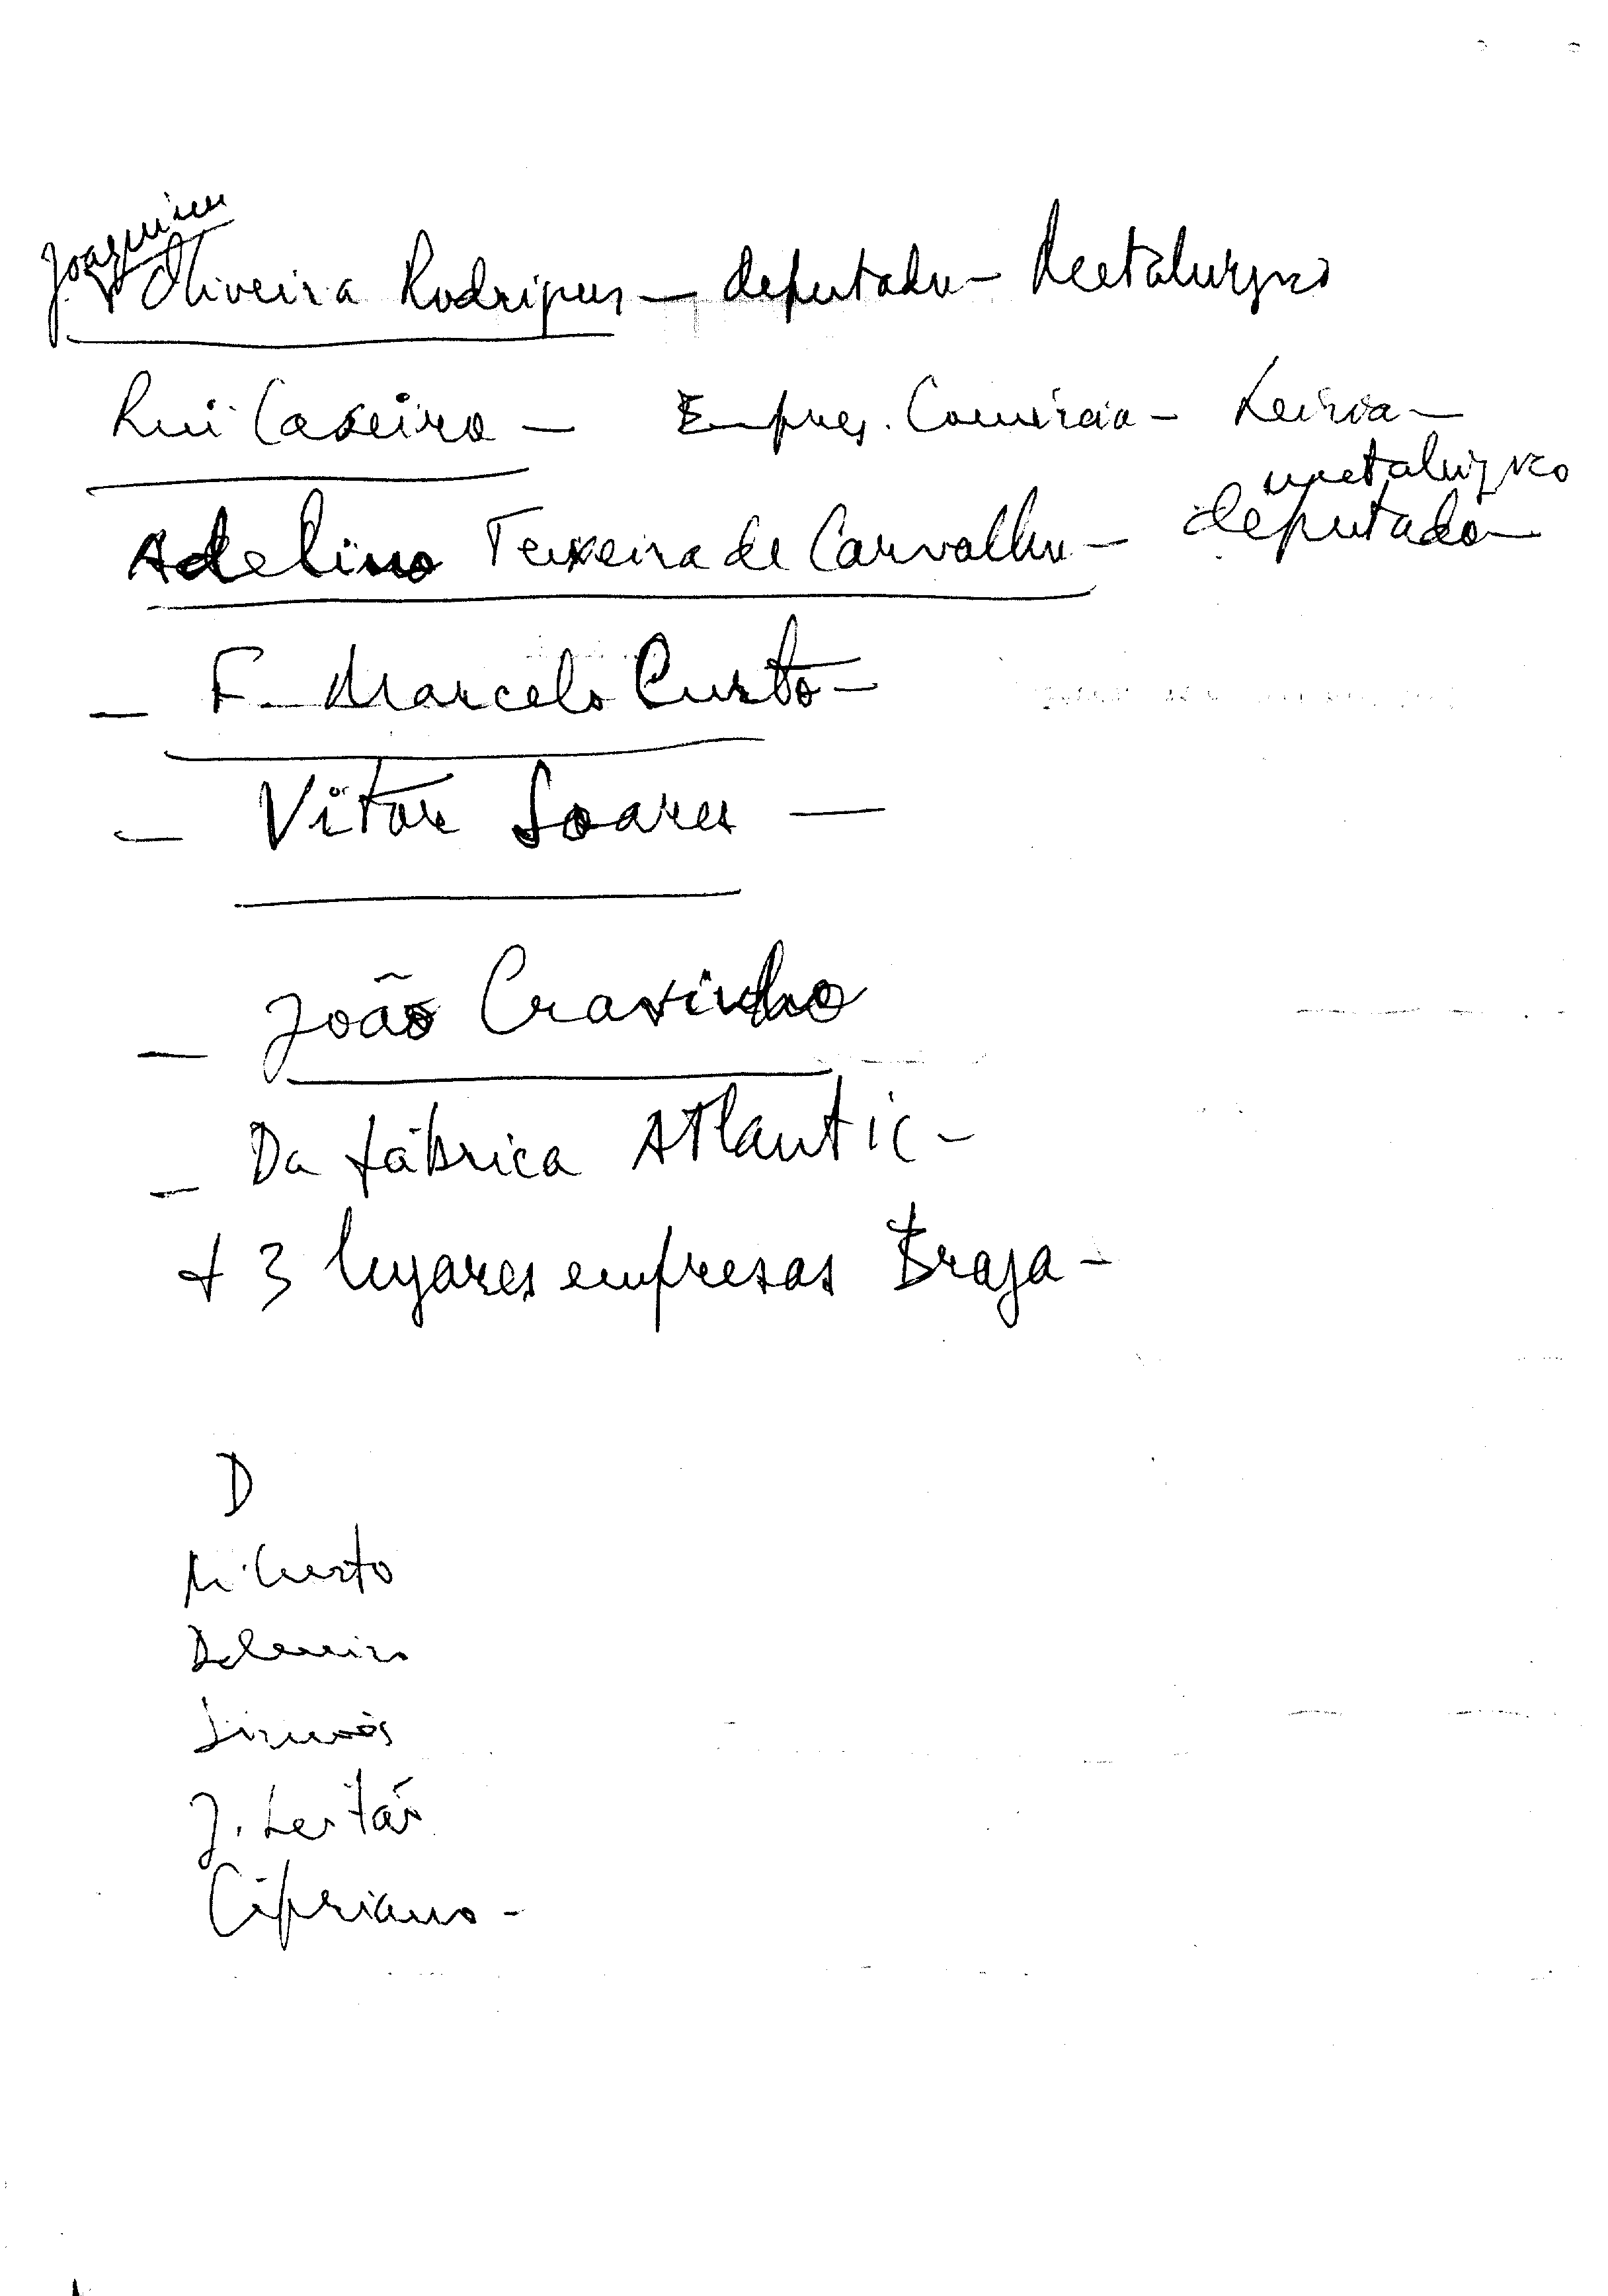 Joaquim
Oliveira Rodrigues — deputado — Metalurgico
Rui Caseiro — Empreg. Comércio — Leiria —
metalurgico
Adelino Teixeira de Carvalho — deputado —
— F. Marcelo Curto —
— Vítor Soares —
— João Cravinho
— Da fábrica ATlantic —
+ 3 lugares empresas Braga —
D
M. Curto
Delmiro
J. Leitão
Cipriano -